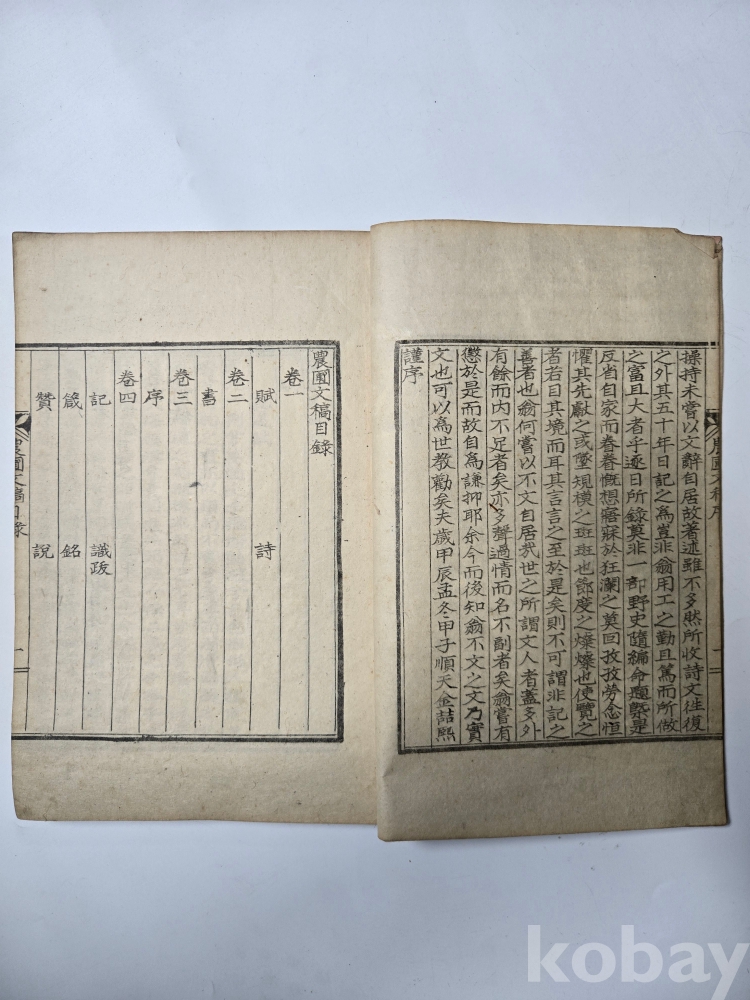 操持未嘗以文辭自居故著述雖不多然所收詩文往復
之外其五十年日記之爲豈非翁用工之勤且篤而所做
之富且大者乎逐日所錄莫非一部野史隨編命題槩是
反省自家而眷眷慨想寤寐於狂瀾之莫回孜孜勞念恒
懼其先獻之或墜規橫之斑斑也節度之燦燦也使覽之
者若目其境而耳其言言之至於是矣則不可謂非記之
善者也翁何嘗以不文自居哉世之所謂文人者蓋多外
有餘而內不足者矣亦多聲過情而名不副者矣翁嘗有
懲於是而故自爲謙抑耶余今而後知翁不文之文乃實
文也可以爲世敎勸矣夫歲甲辰孟冬甲子順天金喆熙
謹序
農圃文稿序
一
農圃文稿目錄
卷一
賦 詩
卷二
書
卷三
序
卷四
記 識跋
箴 銘
贊 說
農圃文稿目錄
一
kobay